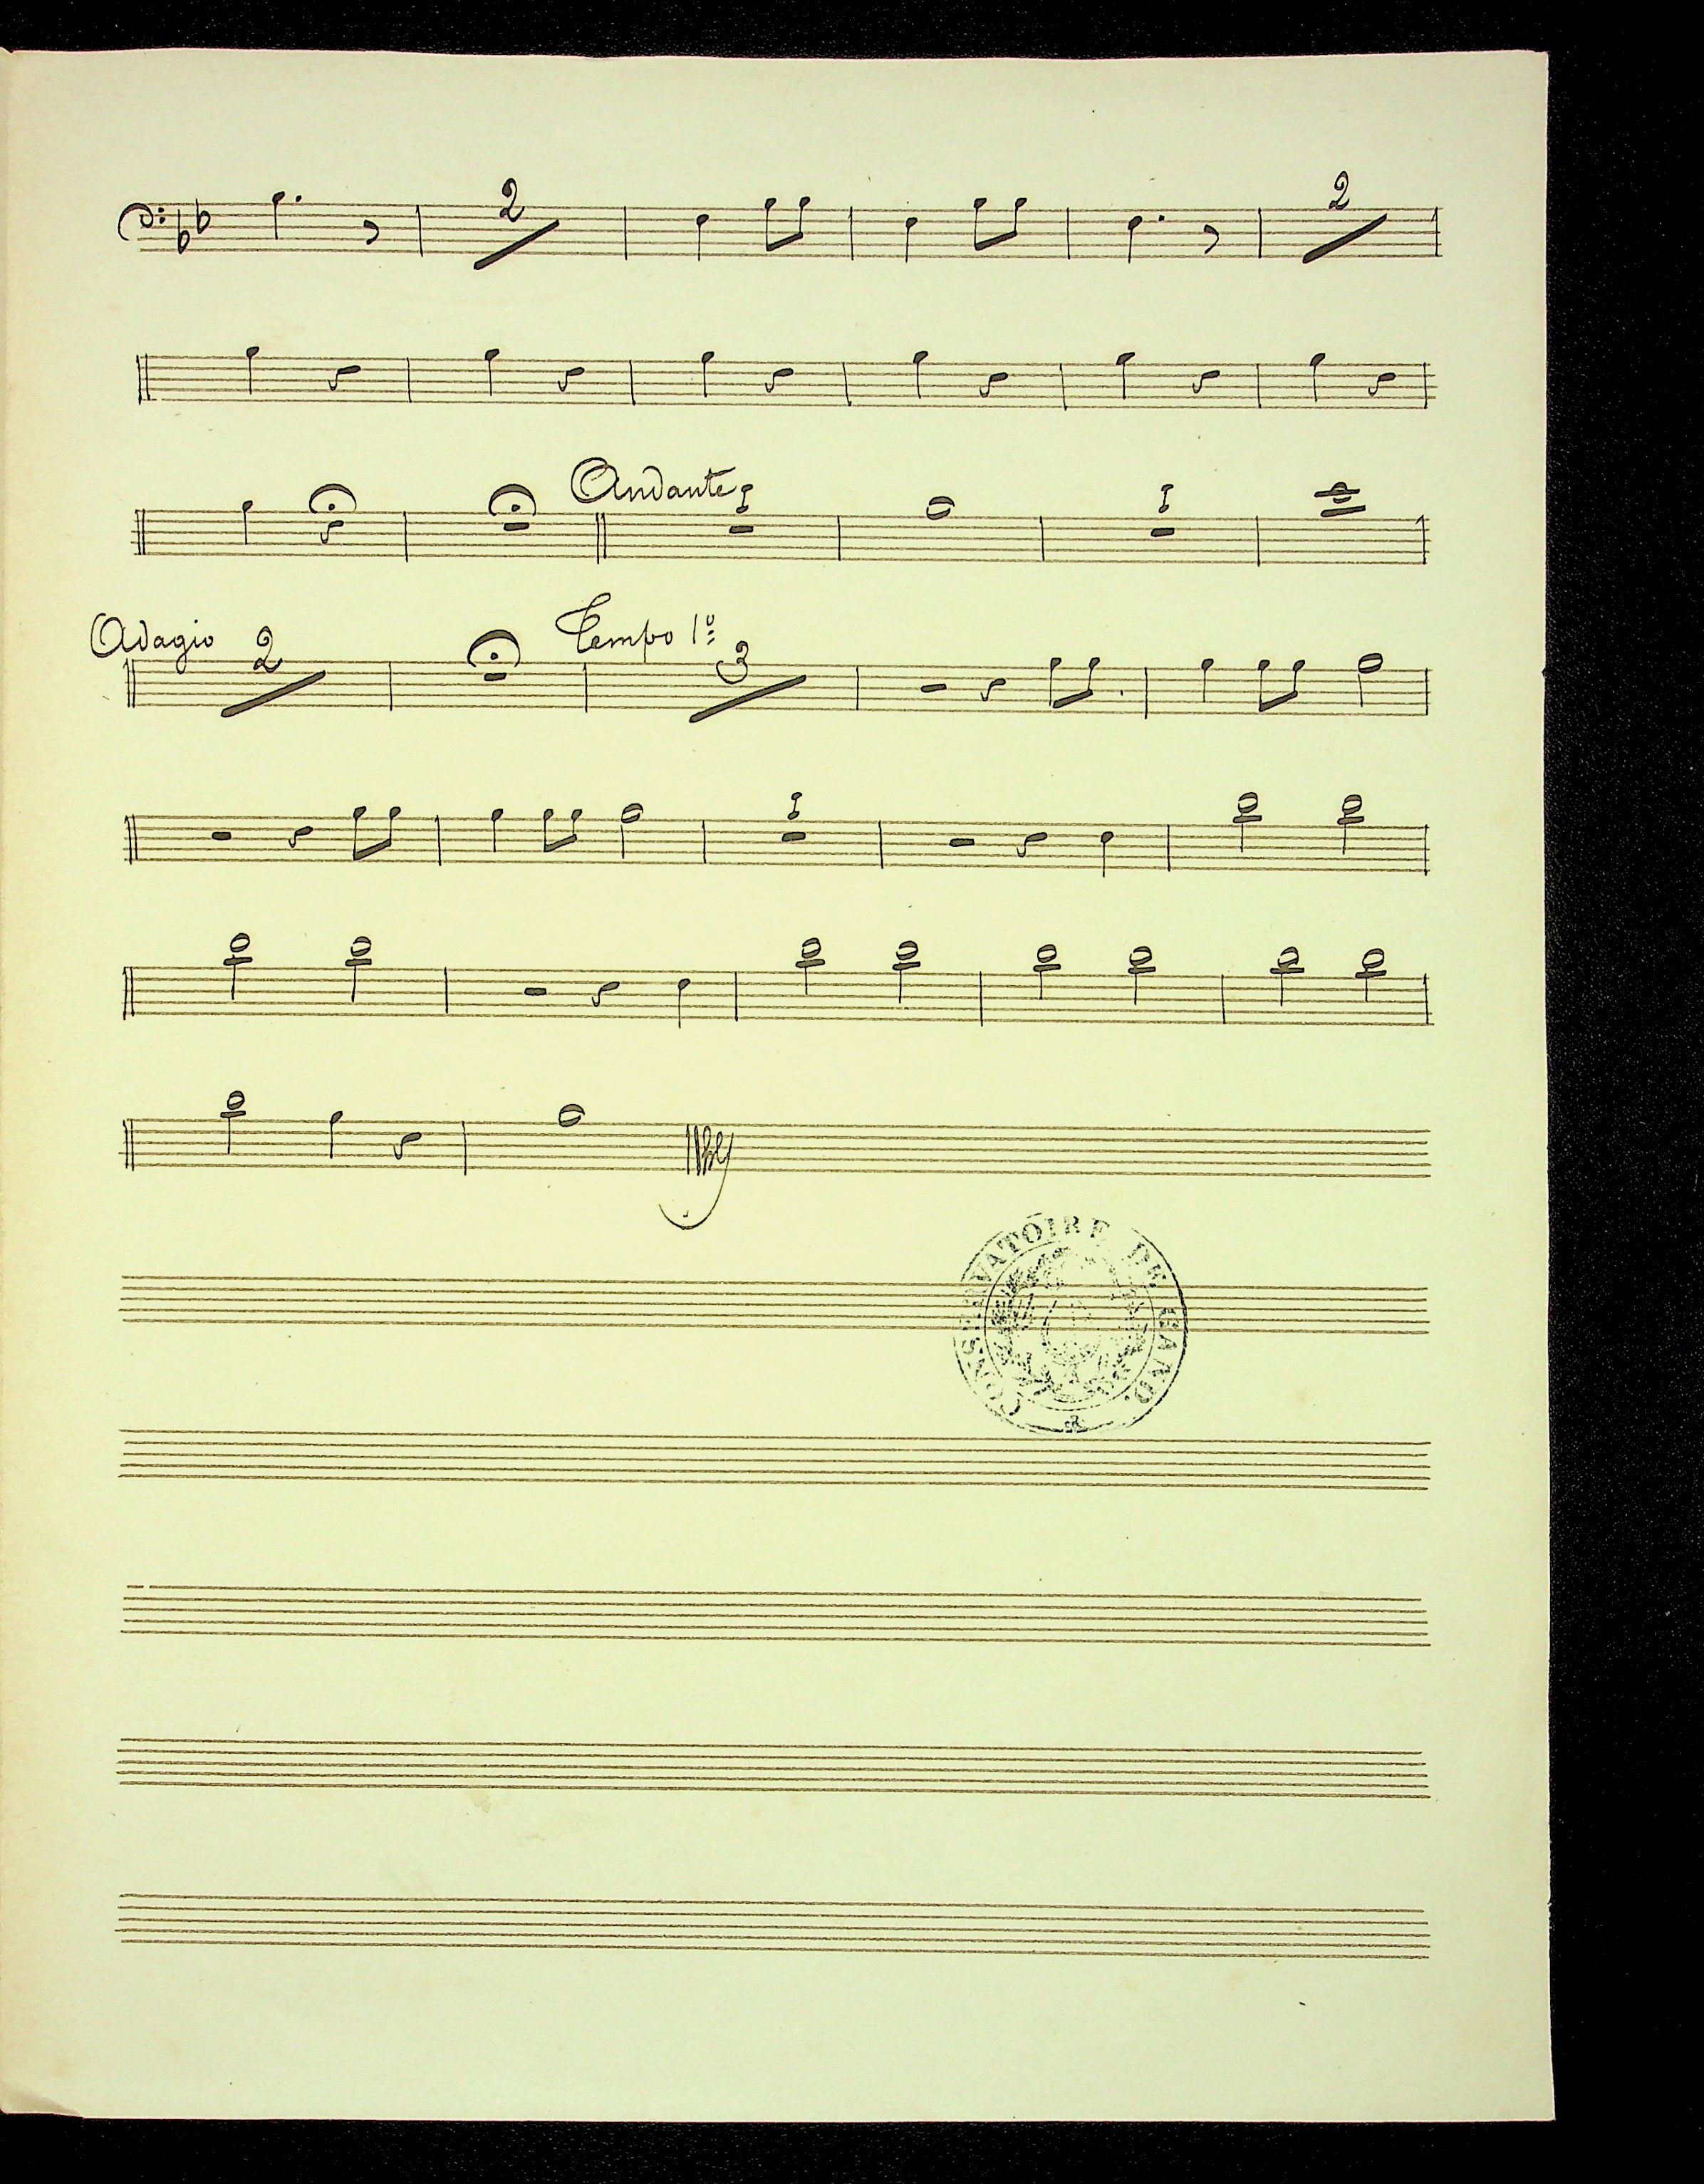 2 2
Andante 1 1
Adagio 2 Tempo 1º 3
1
CONSERVATOIRE DE GAND.